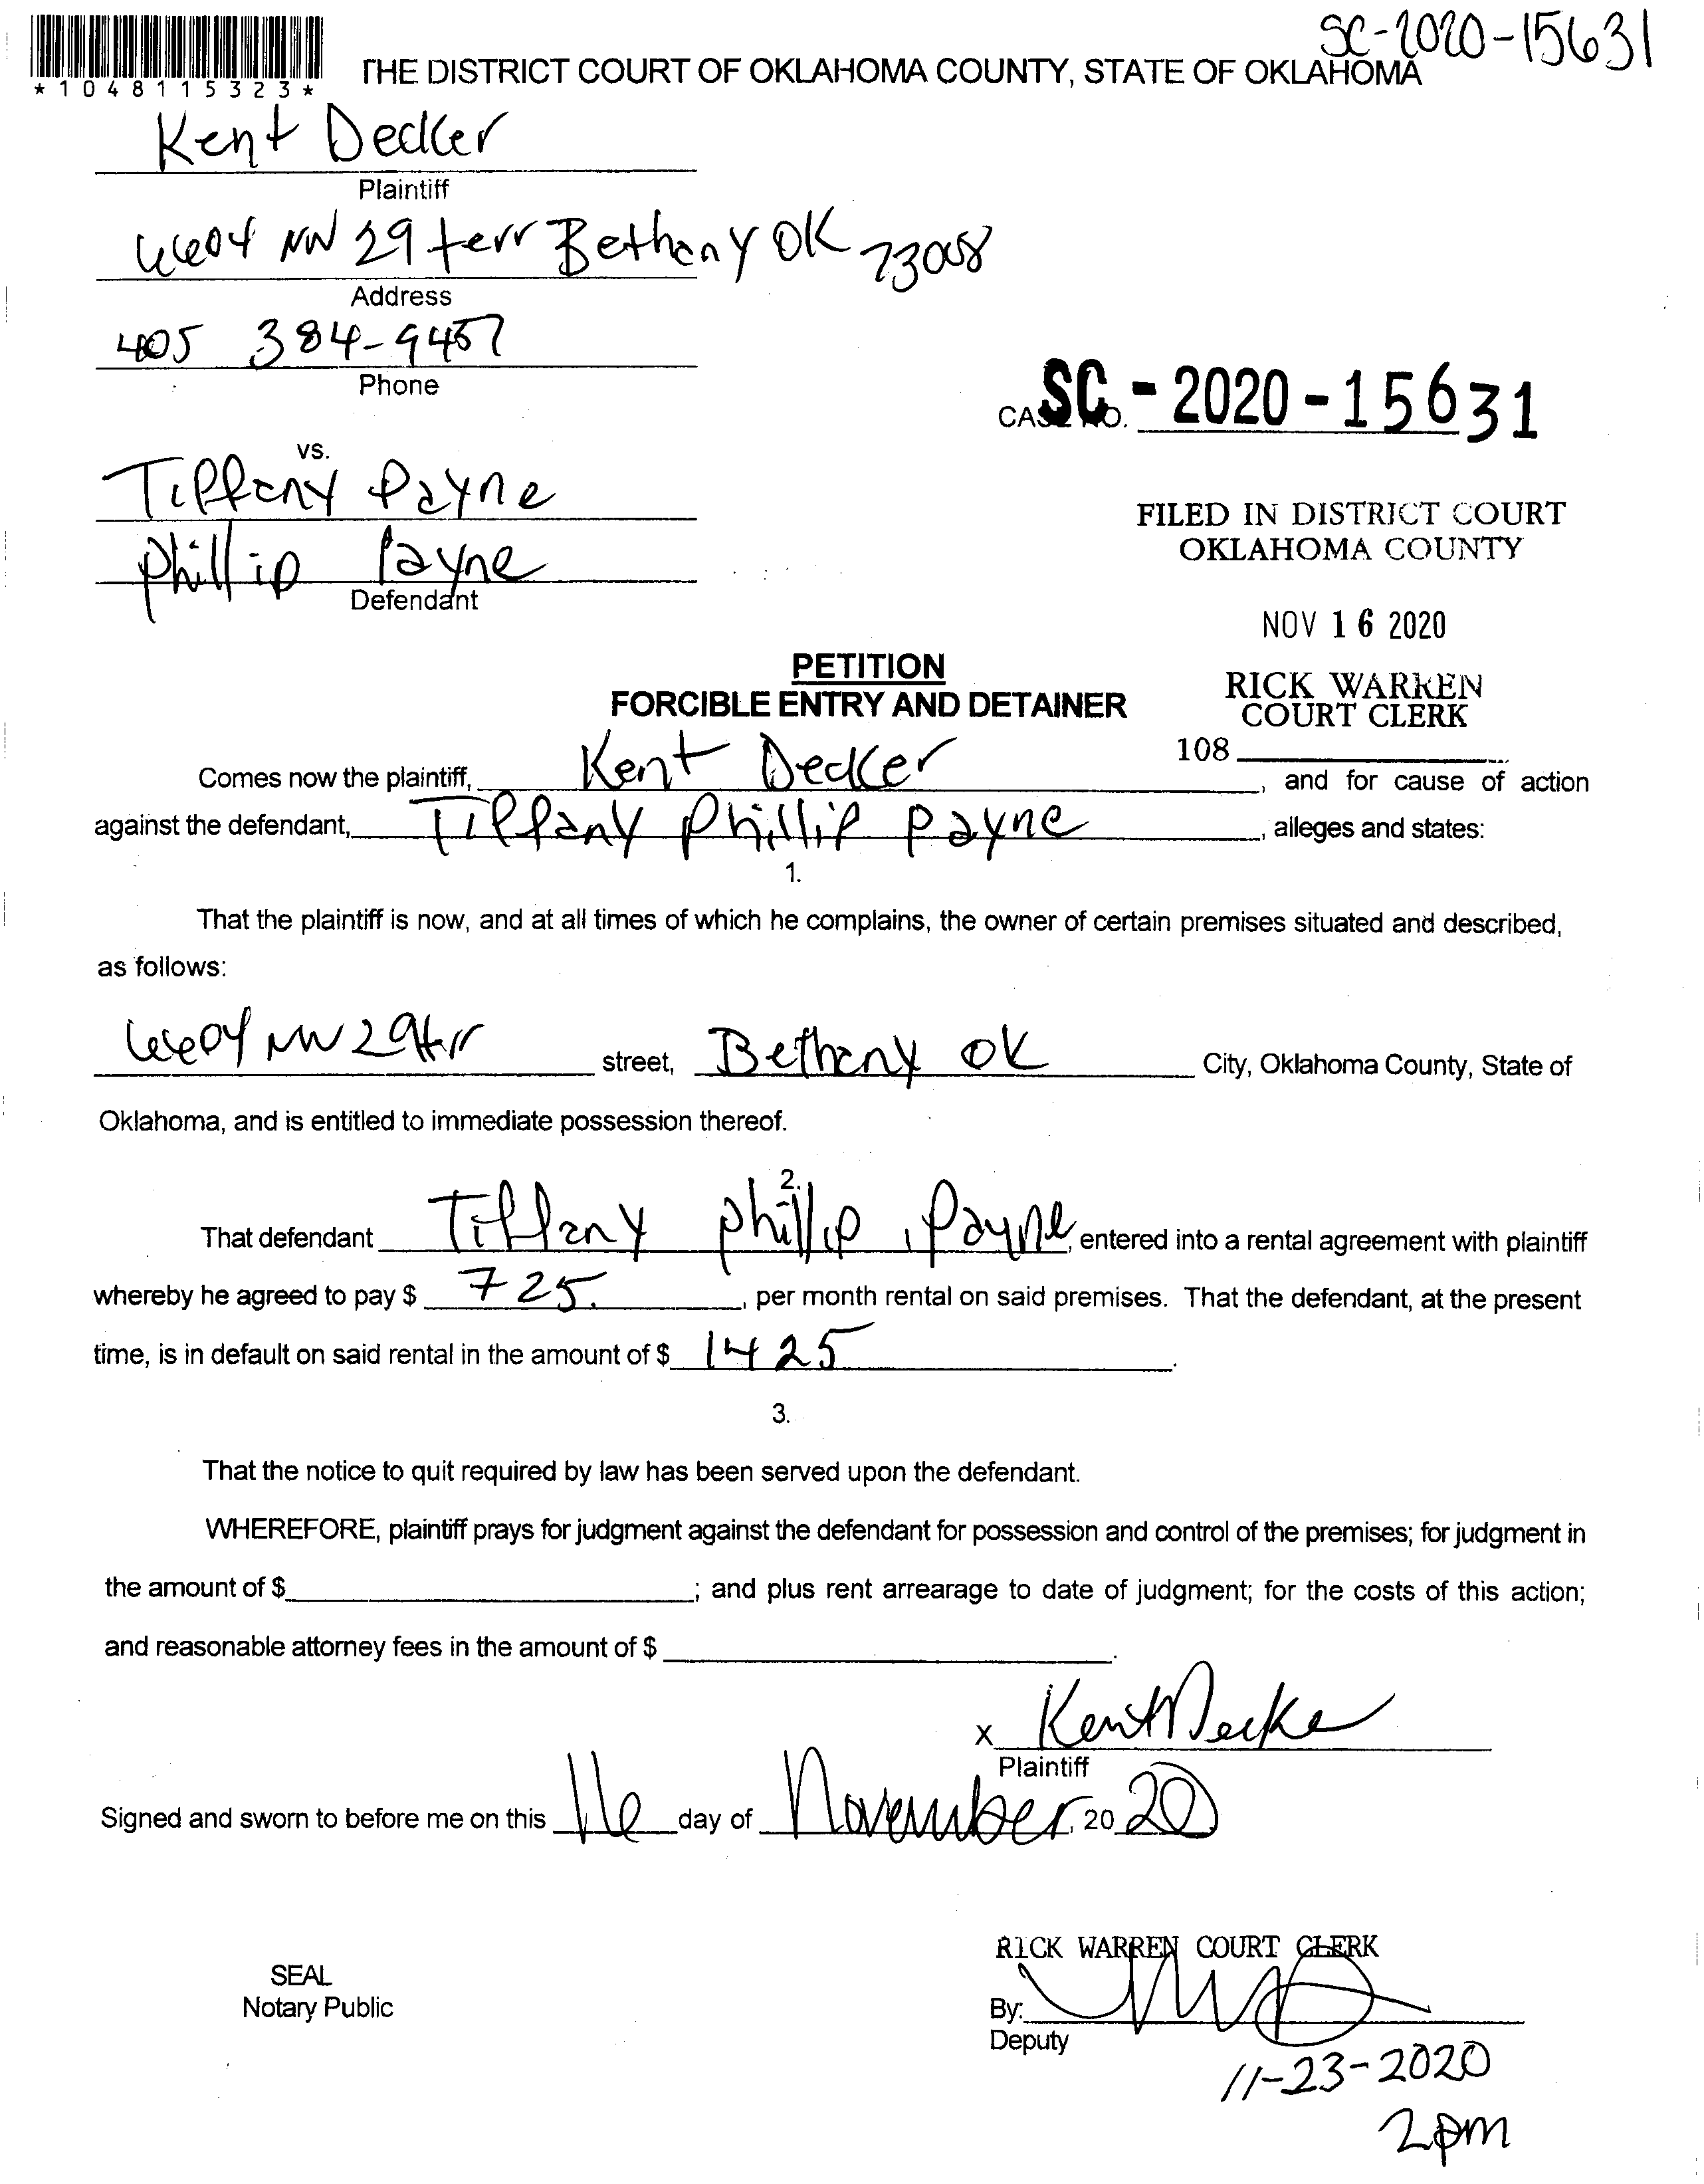 SC-2020-15631
*1048115323*
THE DISTRICT COURT OF OKLAHOMA COUNTY, STATE OF OKLAHOMA
Kent Decker
Plaintiff
6604 NW 29 terr Bethany OK 73008
Address
405 384-9457
Phone
CASE NO. SC-2020-15631
vs.
Tiffany Payne
Phillip Payne
Defendant
FILED IN DISTRICT COURT
OKLAHOMA COUNTY
NOV 16 2020
RICK WARREN
COURT CLERK
108
PETITION
FORCIBLE ENTRY AND DETAINER
Comes now the plaintiff, Kent Decker, and for cause of action
against the defendant, Tiffany Phillip Payne, alleges and states:
1.
That the plaintiff is now, and at all times of which he complains, the owner of certain premises situated and described,
as follows:
6604 NW 29 terr street, Bethany OK City, Oklahoma County, State of
Oklahoma, and is entitled to immediate possession thereof.
2.
That defendant Tiffany Phillip Payne, entered into a rental agreement with plaintiff
whereby he agreed to pay $ 725., per month rental on said premises. That the defendant, at the present
time, is in default on said rental in the amount of $ 1425.
3.
That the notice to quit required by law has been served upon the defendant.
WHEREFORE, plaintiff prays for judgment against the defendant for possession and control of the premises; for judgment in
the amount of $; and plus rent arrearage to date of judgment; for the costs of this action;
and reasonable attorney fees in the amount of $.
X Kent Decker
Plaintiff
Signed and sworn to before me on this 16 day of November, 20 20
RICK WARREN COURT CLERK
SEAL
Notary Public
By:
Deputy
11-23-2020
2pm